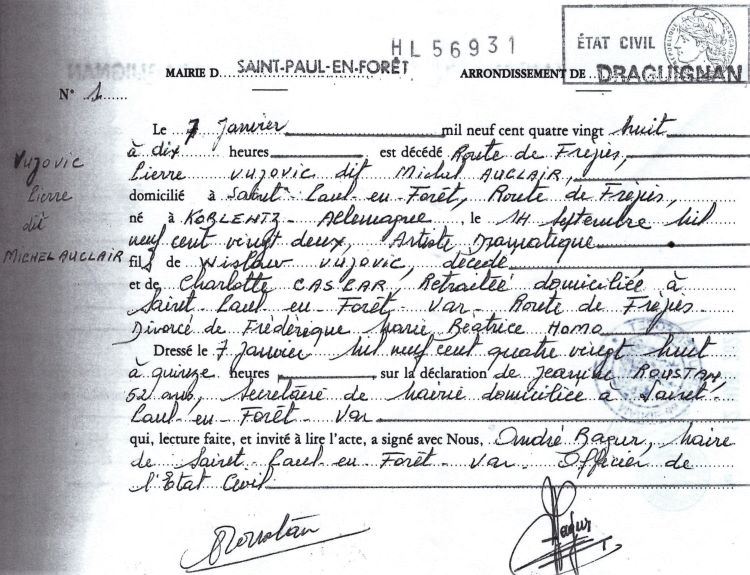 HL56931
ÉTAT CIVIL
RÉPUBLIQUE FRANÇAISE
MAIRIE D SAINT-PAUL-EN-FORÊT ARRONDISSEMENT DE DRAGUIGNAN
N° 1
Vujovic
Pierre
dit
MICHEL AUCLAIR
Le 7 Janvier mil neuf cent quatre vingt huit
à dix heures est décédé Route de Fréjus,
Pierre VUJOVIC dit Michel AUCLAIR,
domicilié à Saint-Paul-en-Forêt, Route de Fréjus,
né à KOBLENTZ - Allemagne, le 14 Septembre Mil
neuf cent vingt deux, Artiste Dramatique
fils de Wislaw VUJOVIC, décédé
et de Charlotte CASPAR, Retraitée domiciliée à
Saint-Paul-en-Forêt - Var - Route de Fréjus.
Divorcé de Frédérique Marie Béatrice Homo
Dressé le 7 Janvier Mil neuf cent quatre vingt huit
à quinze heures sur la déclaration de Jeanine ROUSTAN,
52 ans, Secrétaire de mairie domiciliée à Saint-
Paul-en-Forêt - Var
qui, lecture faite, et invité à lire l'acte, a signé avec Nous, André Bagur, Maire
de Saint-Paul-en-Forêt - Var - Officier de
l'Etat Civil
Roustan
Bagur